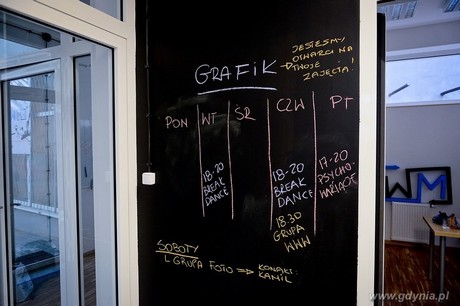 JESTEŚMY
OTWARCI NA
TWOJE
ZAJĘCIA!
GRAFIK
PON WT ŚR CZW PT
18-20
BREAK
DANCE
18-20
BREAK
DANCE
18.30
GRUPA
WWW
17-20
PSYCHO-
WARIACJE
SOBOTY
GRUPA FOTO
KAMIL
WM
www.gdynia.pl